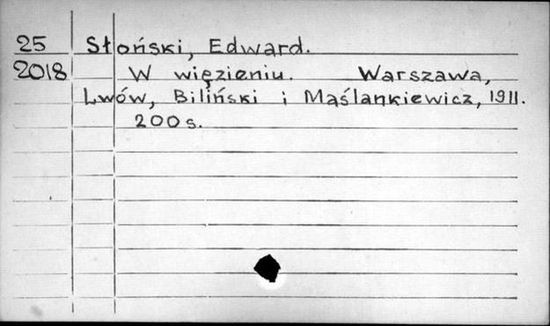 25 Słoński, Edward.
2018 W więzieniu. Warszawa,
Lwów, Biliński i Maślankiewicz, 1911.
200 s.